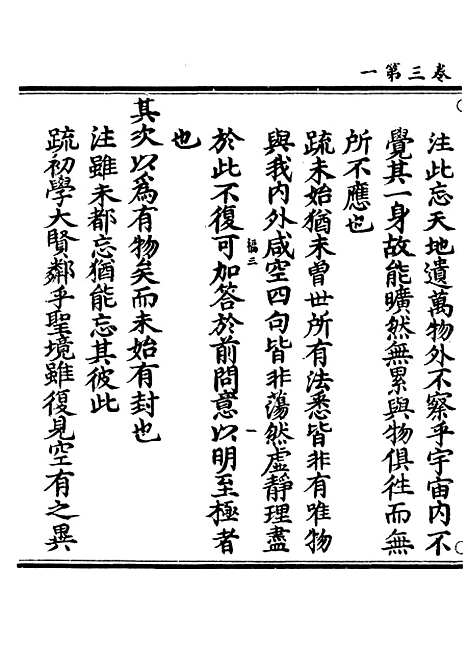 卷三第一
注此忘天地遺萬物外不察乎宇宙内不
覺其一身故能曠然無累與物俱徃而無
所不應也
疏未始猶未曽世所有法悉皆非有唯物
與我内外咸空四句皆非蕩然虛靜理盡
於此不復可加答於前問意以明至極者
也
其次以為有物矣而未始有封也
注雖未都忘猶能忘其彼此
疏初學大賢鄰乎聖境雖復見空有之異